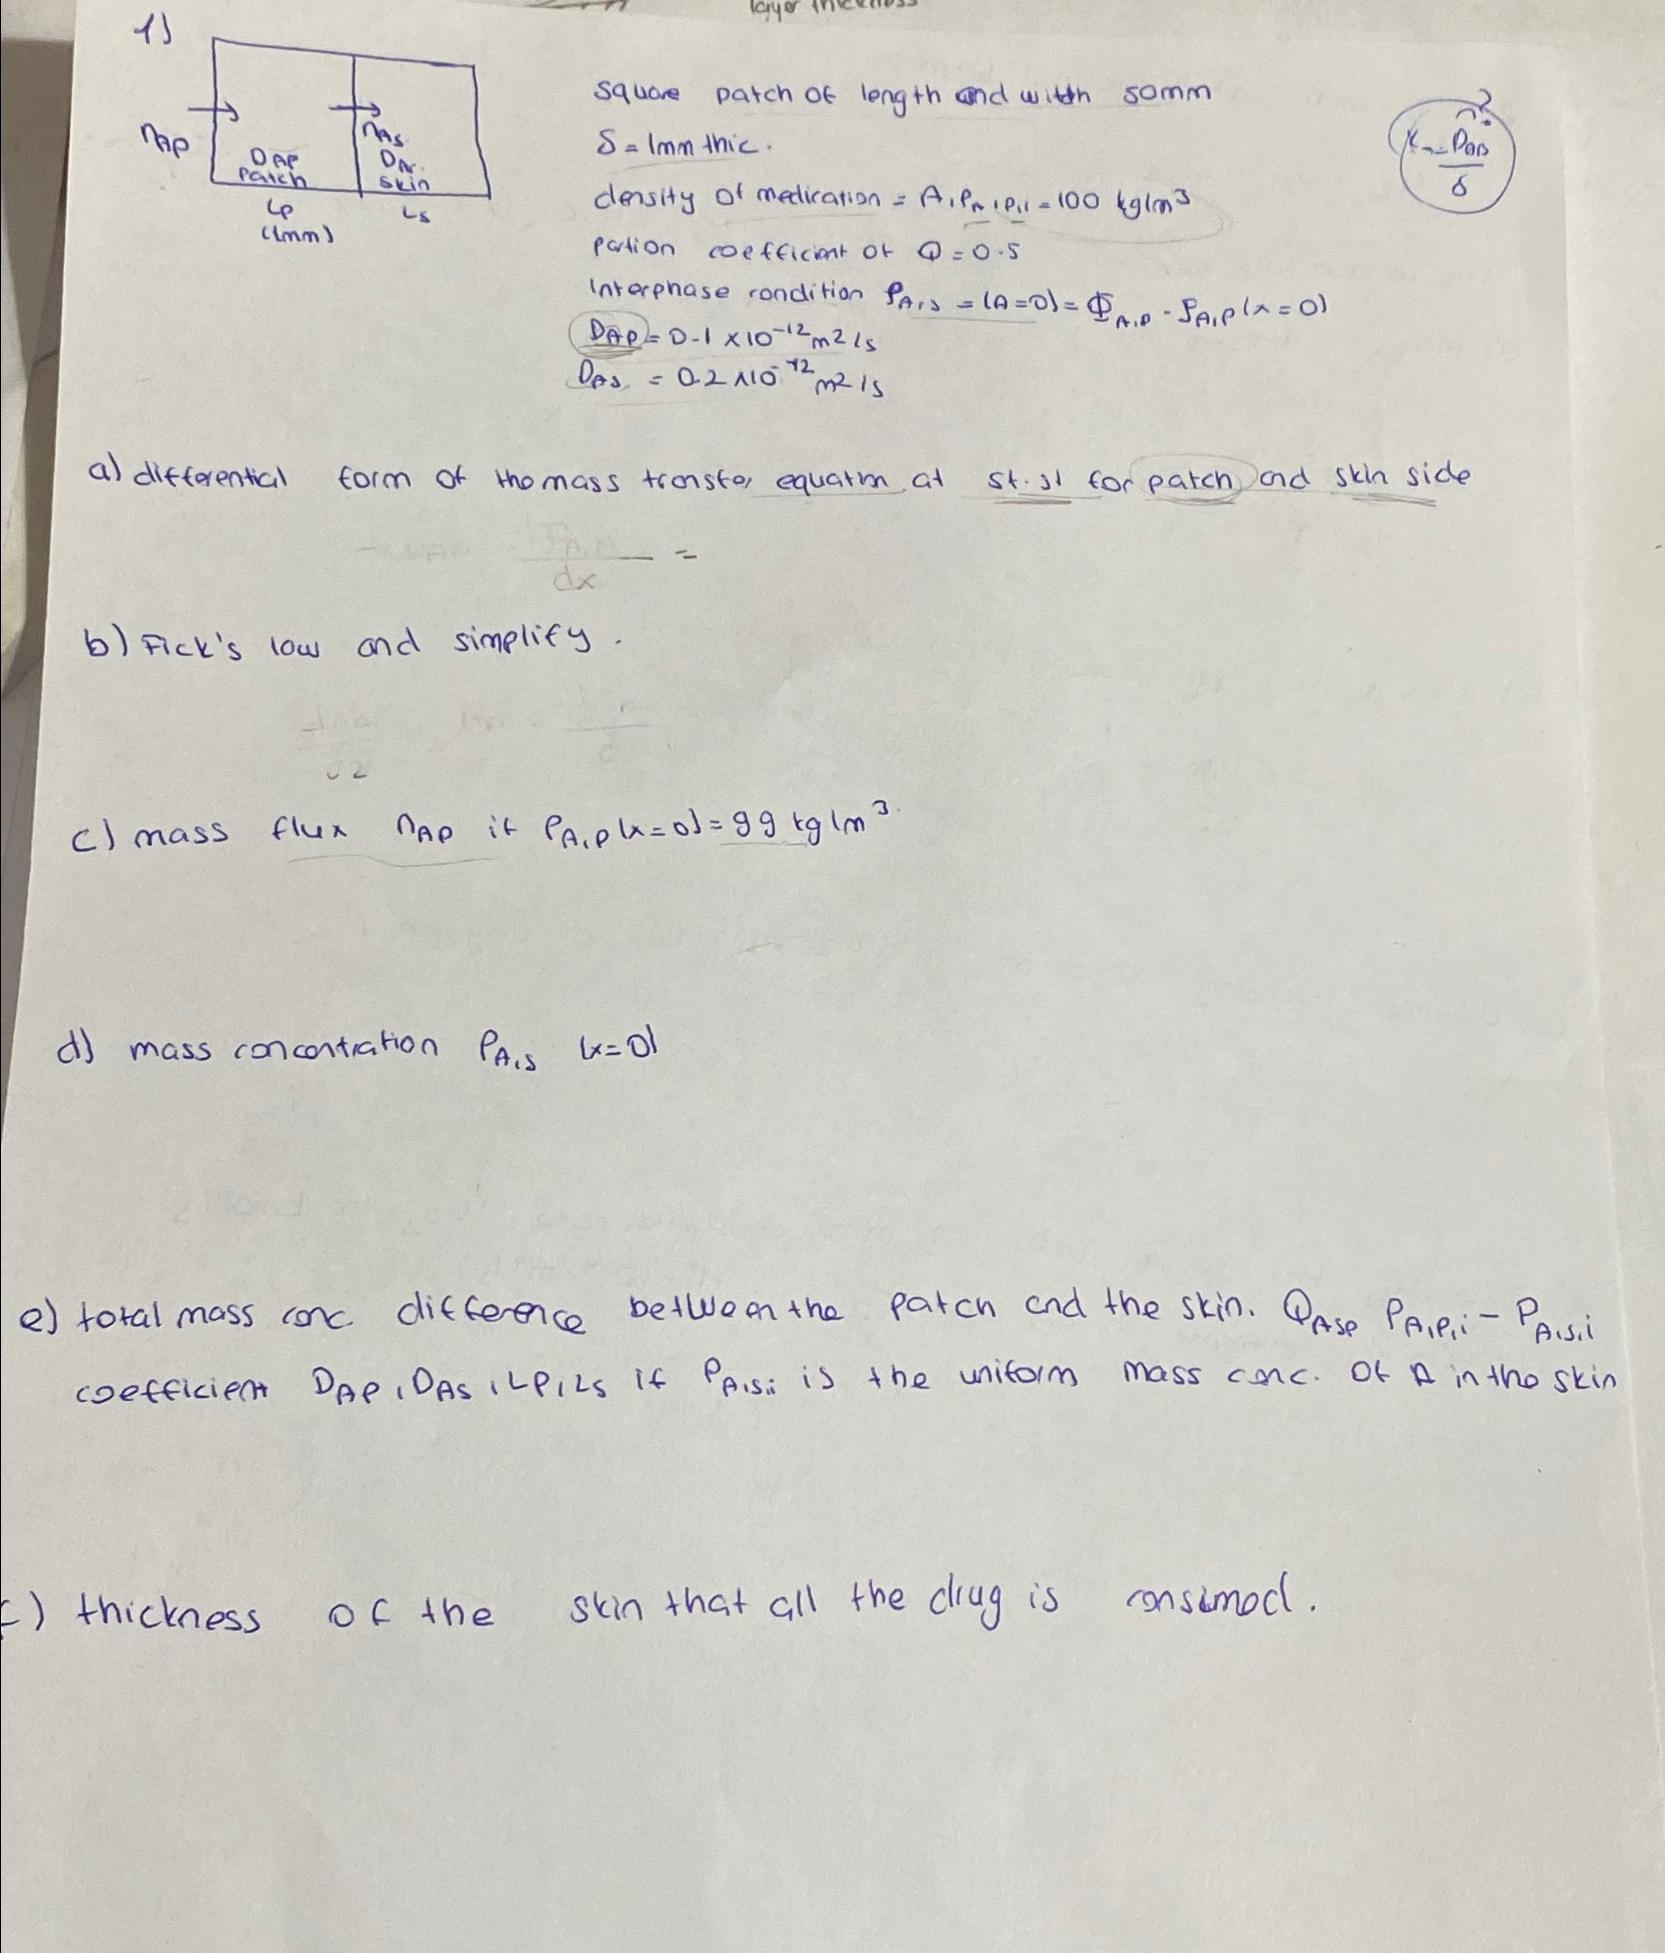 layer thickness
1)
square patch of length and width 50mm
nAP
nAs
DAP
patch
DAs
skin
Lp
(1mm)
Ls
δ = 1mm thic.
?
= DAB
δ
density of medication = A, ρA,P,i = 100 kg/m³
partion coefficient of Q = 0.5
Interphase condition ρA,s = (A=0) = ΦA,P - ρA,P (x=0)
DAP = 0.1 x 10⁻¹² m² / s
DAs = 0.2 x 10⁻¹² m² / s
a) differential form of the mass transfer equation at st. st for patch and skin side
dx =
b) Fick's low and simplify.
c) mass flux nAP if ρA,P (x=0) = 99 kg/m³
d) mass concontration ρA,s (x=0)
e) total mass conc difference between the patch and the skin. QAsp ρA,P,i - ρA,s,i
coefficient DAP, DAs, LP, Ls if ρA,s,i is the uniform mass conc. of A in the skin
) thickness of the skin that all the drug is consumed.